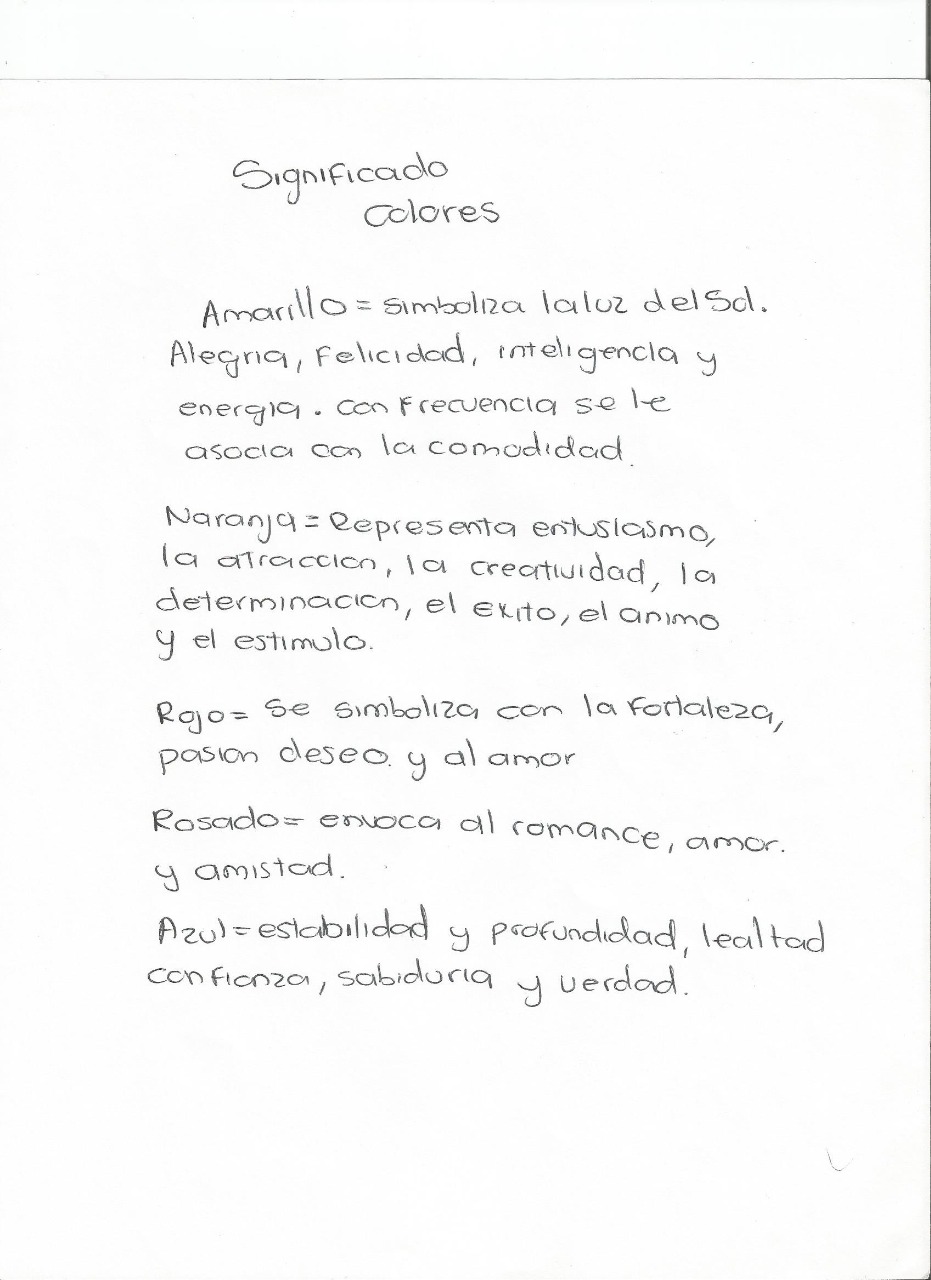 Significado
Colores
Amarillo = simboliza la luz del Sol.
Alegria, Felicidad, inteligencia y
energia. con frecuencia se le
asocia con la comodidad.
Naranja = Representa entusiasmo,
la atraccion, la creatividad, la
determinacion, el exito, el animo
y el estimulo.
Rojo = Se simboliza con la fortaleza,
pasion deseo. y al amor
Rosado = envoca al romance, amor.
y amistad.
Azul = estabilidad y profundidad, lealtad
confianza, sabiduria y verdad.